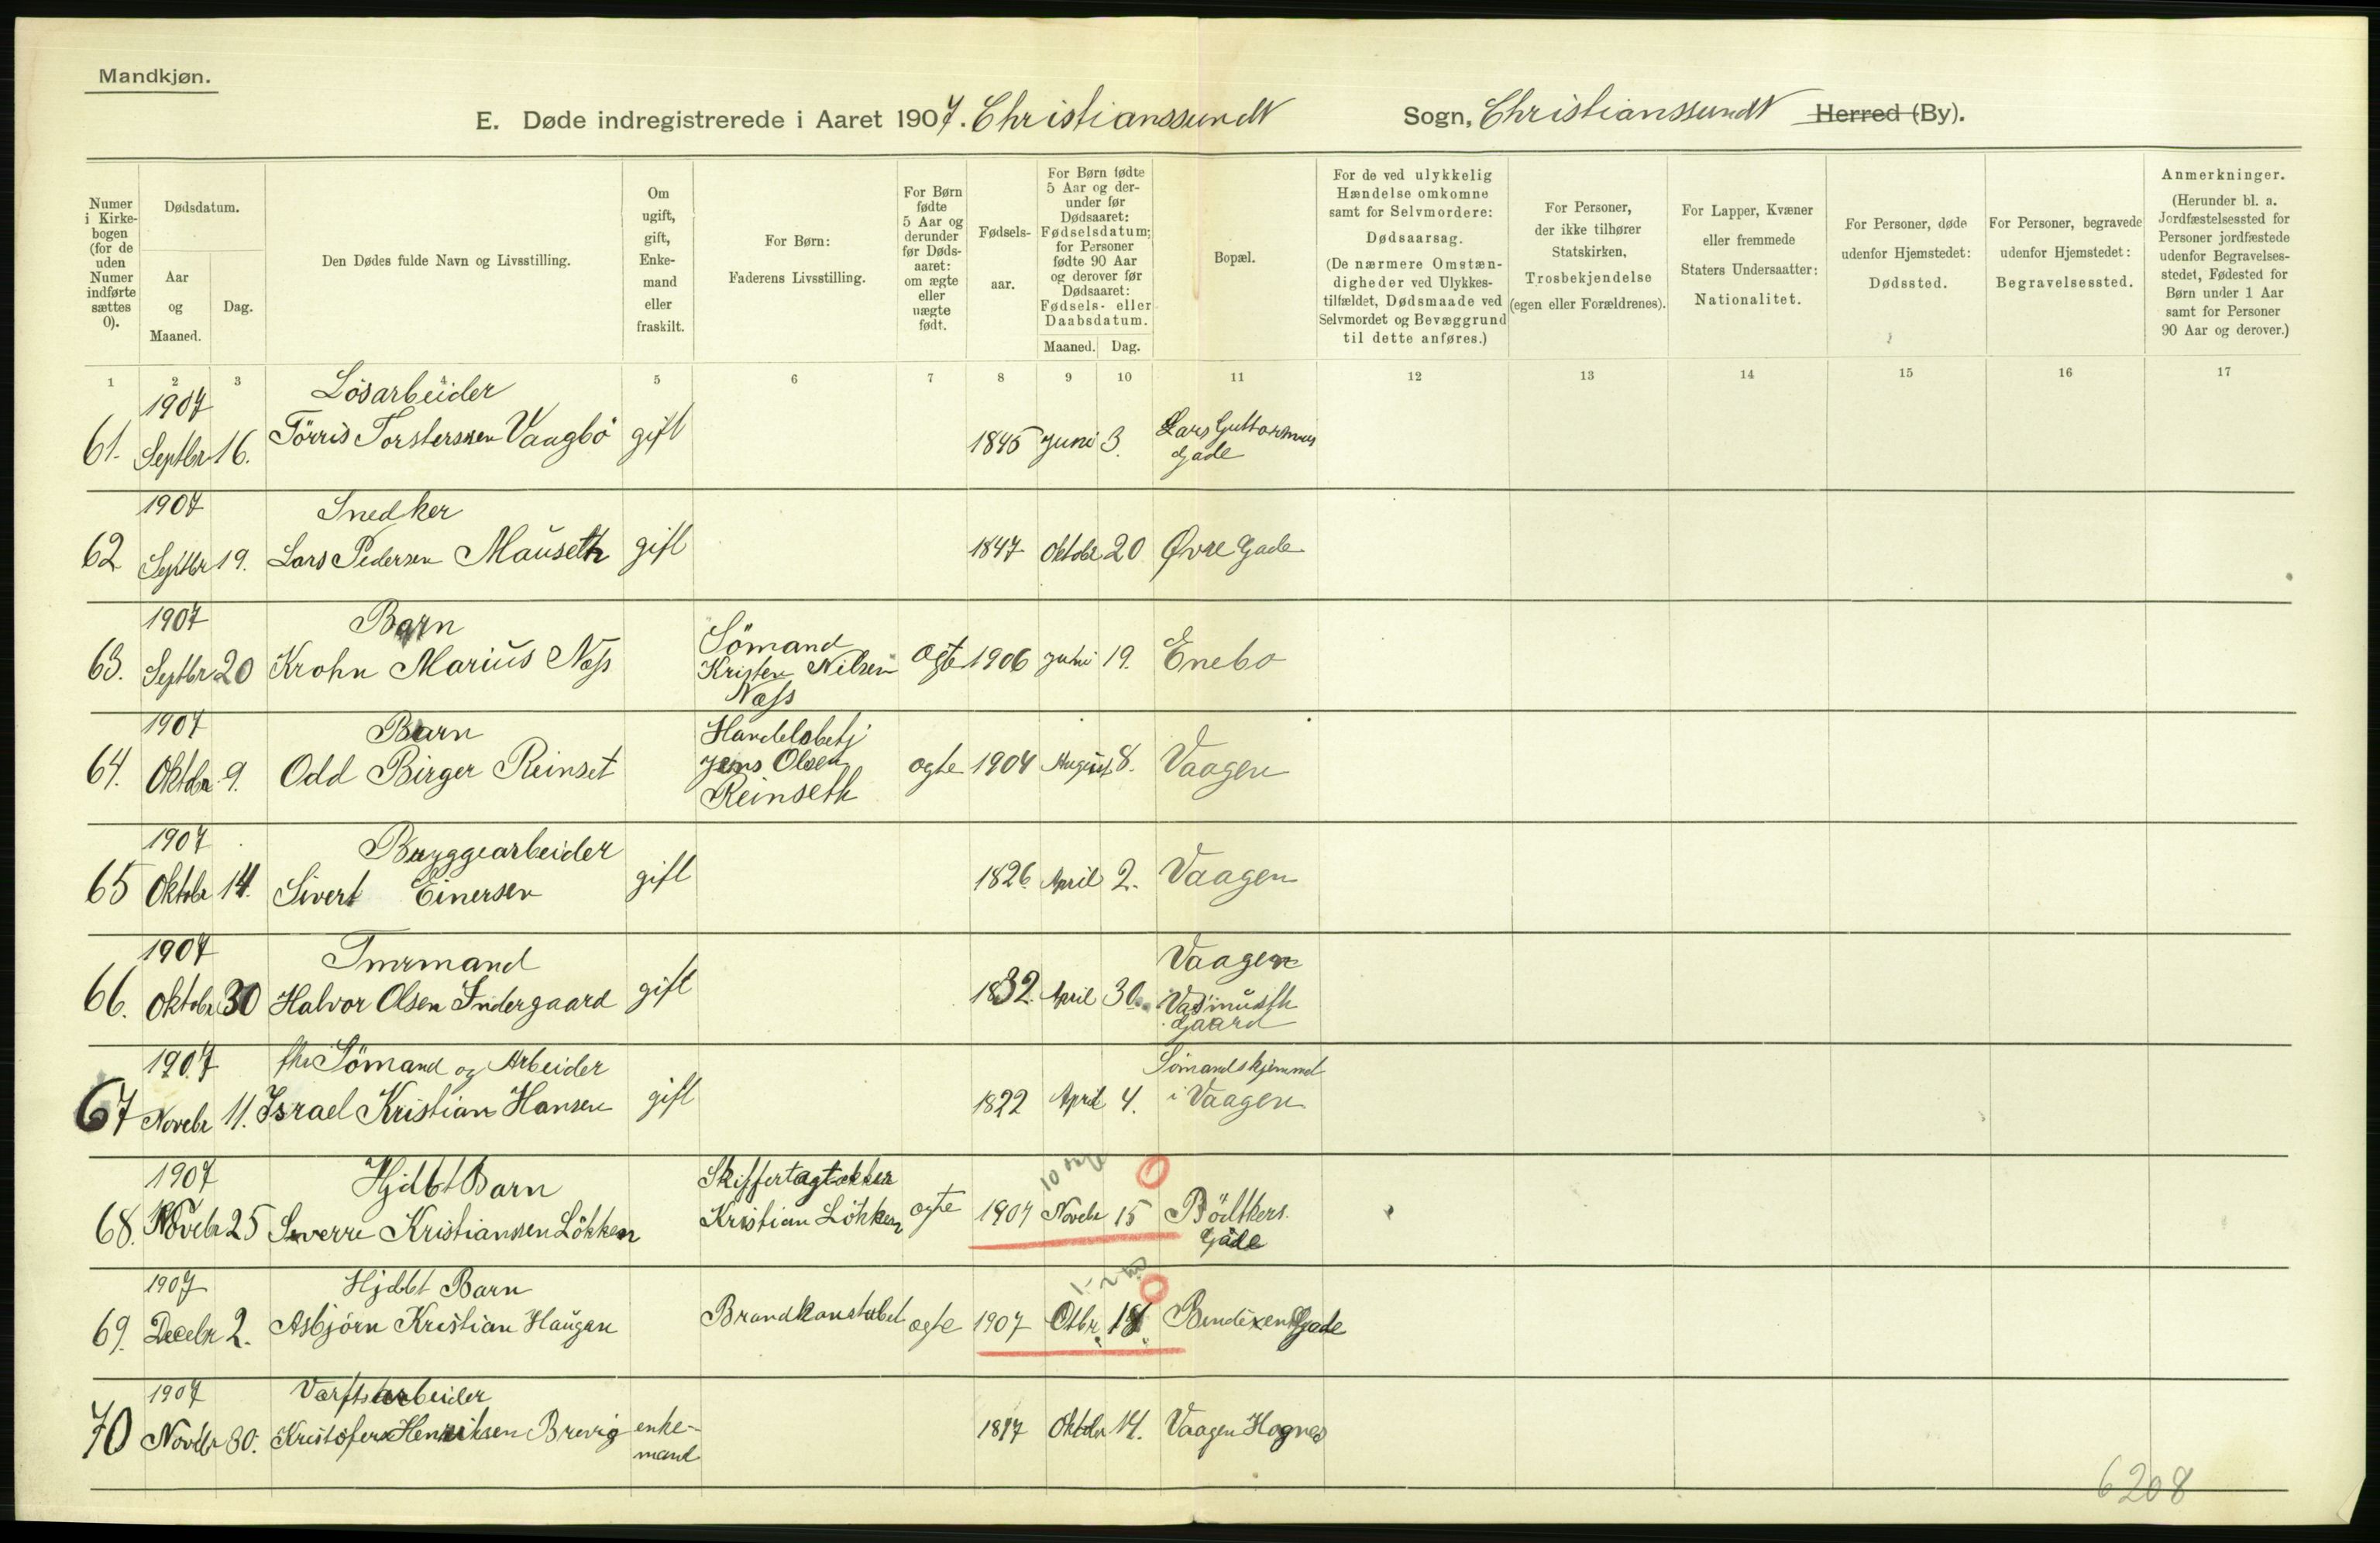 Mandkjøn.
E. Døde indregistrerede i Aaret 1907. Christianssundt Sogn, Christianssundt Herred (By).
Numer i Kirkebogen (for de uden Numer indførte sættes 0).
Dødsdatum.
Aar og Maaned.
Dag.
Den Dødes fulde Navn og Livsstilling.
Om ugift, gift, Enkemand eller fraskilt.
For Børn: Faderens Livsstilling.
For Børn fødte 5 Aar og derunder før Dødsaaret: om ægte eller uægte født.
Fødselsaar.
For Børn fødte 5 Aar og derunder før Dødsaaret: Fødselsdatum; for Personer fødte 90 Aar og derover før Dødsaaret: Fødsels- eller Daabsdatum.
Maaned. Dag.
Bopæl.
For de ved ulykkelig Hændelse omkomne samt for Selvmordere: Dødsaarsag. (De nærmere Omstændigheder ved Ulykkestilfældet, Dødsmaade ved Selvmordet og Bevæggrund til dette anføres.)
For Personer, der ikke tilhører Statskirken, Trosbekjendelse (egen eller Forældrenes).
For Lapper, Kvæner eller fremmede Staters Undersaatter: Nationalitet.
For Personer, døde udenfor Hjemstedet: Dødssted.
For Personer, begravede udenfor Hjemstedet: Begravelsessted.
Anmerkninger. (Herunder bl. a. Jordfæstelsessted for Personer jordfæstede udenfor Begravelsesstedet, Fødested for Børn under 1 Aar samt for Personer 90 Aar og derover.)
1 2 3 5 6 7 8 9 10 11 12 13 14 15 16 17
1907 Lösarbeider
61. Septbr 16. Törris Torsterssen Vaagbö gift 1845 Juni 3. Lars Guttormus
Gade
1907 Snedker
62 Septbr 19. Lars Pedersen Mauseth gift 1847 Oktobr 20 Øvre Gade
1907 Barn Sömand
63. Septbr 20 Krohn Marius Næss Kristen Nilsen ægte 1906 Juni 19. Enebo
Næss
1907 Barn Handelsbetj
64. Oktobr 9. Odd Birger Reinset Jens Olsen ægte 1904 August 8. Vaagen
Reinseth
1907 Bryggearbeider
65 Oktobr 14. Sivert Einersen gift 1826 April 2. Vaagen
1907 Tmrmand Vaagen
66. Oktobr 30 Halvor Olsen Indergaard gift 1832. April 30
Gaard
1907 fhv Sömand og Arbeider Sömandshjemmet
67 Novebr 11. Israel Kristian Hansen gift 1822 April 4. i Vaagen
1907 Hjdbt Barn Skiffertagtækker
68. Novebr 25 Sverre Kristianssen Lökken Kristian Lökken ægte 1907 Novebr 15 Bödtkers
Gade
1907 Hjdbt Barn
69. Decebr 2. Asbjörn Kristian Haugan Brandkonstabel ægte 1907 Otbr Bendixens Gade
1907 Værftsarbeider
70 Novebr 30. Kristofer Henriksen Brevig enke- 1817 Oktobr 14. Vaagen Hognes
mand
6208